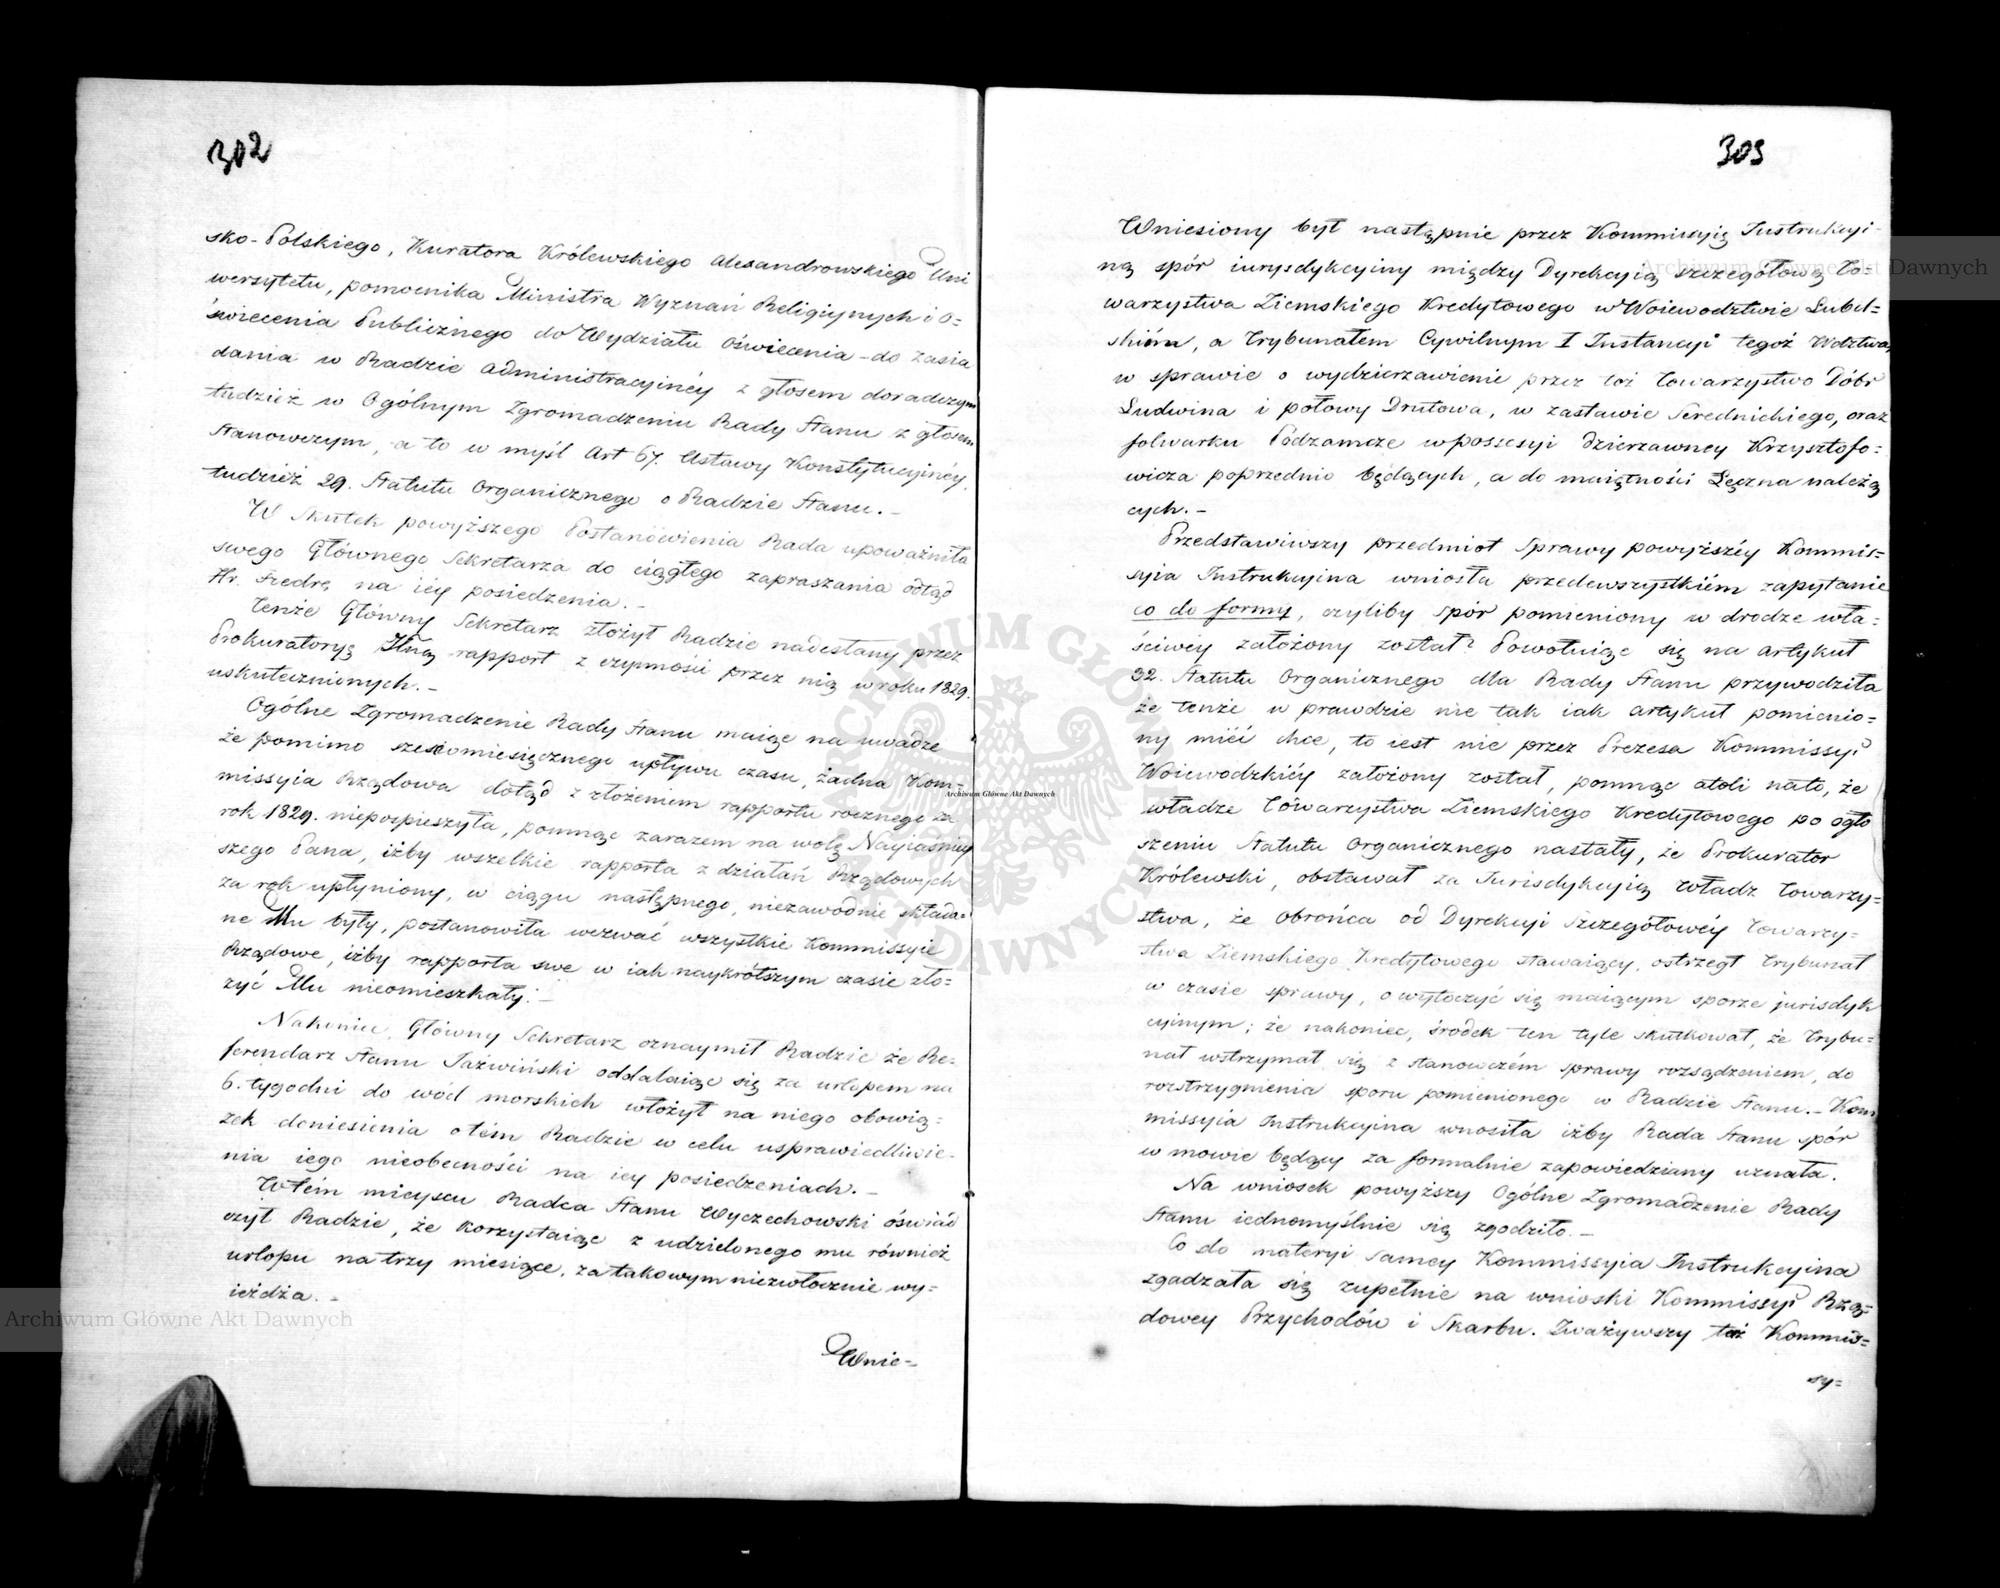 302
sko-Polskiego, Kuratora Królewskiego Alexandrowskiego Uni
wersytetu, pomocnika Ministra Wyznań Religiynych i O=
świecenia Publicznego do Wydziału Oświecenia - do zasia
dania w Radzie Administracyinéy z głosem doradczym
tudzież w Ogólnym Zgromadzeniu Rady Stanu z głosem
stanowczym, a to w myśl Art 67. Ustawy Konstytucyinéy,
tudzież 29. Statutu Organicznego o Radzie Stanu. -
W skutek powyższego Postanowienia Rada upoważniła
swego Głównego Sekretarza do ciągłego zapraszania odtąd
Hr. Fredrę na iéy posiedzenia. -
Tenże Główny Sekretarz złożył Radzie nadesłany przez
Prokuratoryą Jlną rapport z czynności przez nią w roku 1829.
uskutecznionych. -
Ogólne Zgromadzenie Rady Stanu maiąc na uwadze
że pomimo sześciomiesięcznego upływu czasu, żadna Kom=
missyia Rządowa dotąd z złożeniem rapportu rocznego za
rok 1829. niepospieszyła, pomnąc zarazem na wolę Nayiaśniey
szego Pana, iżby wszelkie rapporta z działań Rządowych
za rok upłyniony, w ciągu następnego, niezawodnie składa=
ne Mu były, postanowiła wezwać wszystkie Kommissyie
Rządowe, iżby rapporta swe w iak naykrótszym czasie zło=
żyć Mu nieomieszkały. -
Nakoniec Główny Sekretarz oznaymił Radzie że Re=
ferendarz Stanu Jaźwiński oddalaiąc się za urlopem na
6. tygodni do wód morskich włożył na niego obowią=
zek doniesienia o tém Radzie w celu usprawiedliwie-
nia iego nieobecności na iey posiedzeniach. -
W tém mieyscu Radca Stanu Wyczechowski oświad
czył Radzie, że korzystaiąc z udzielonego mu również
urlopu na trzy miesiące, za takowym niezwłocznie wy=
ieżdża. -
Wnie=
303
Wniesiony był następnie przez Kommissyią Instrukcyi-
ną spór iurysdykcyiny między Dyrekcyią szczegółową To=
warzystwa Ziemskiego Kredytowego w Woiewodztwie Lubel=
skiém, a Trybunałem Cywilnym I Instancyi tegoż Wdztwa,
w sprawie o wydzierzawienie przez toż Towarzystwo Dóbr
Ludwina i połowy Drutowa, w zastawie Serednickiego, oraz
folwarku Podzamcze w possesyi dzierzawney Krzysztofo=
wicza poprzednio będących, a do maiętności Łęczna należą
cych. -
Przedstawiwszy przedmiot sprawy powyższéy Kommis=
syia Instrukcyina wniosła przedewszystkiém zapytanie
co do formy, czyliby spór pomieniony w drodze wła=
ściwéy założony został? Powołuiąc się na artykuł
32. Statutu Organicznego dla Rady Stanu przywodziła
że tenże w prawdzie nie tak iak artykuł pomienio=
ny mieć chce, to iest nie przez Prezesa Kommissyi
Woiewodzkiéy założony został, pomnąc atoli na to, że
władze Towarzystwa Ziemskiego Kredytowego po ogło
szeniu Statutu Organicznego nastały, że Prokurator
Królewski, obstawał za Jurisdykcyią Władz Towarzy=
stwa, że Obrońca od Dyrekcyi Szczegółowéy Towarzy=
stwa Ziemskiego Kredytowego stawaiący, ostrzegł Trybunał
w czasie sprawy, o wytoczyć się maiącym sporze jurisdyk
cyinym; że nakoniec, środek ten tyle skutkował, że Trybu=
nał wstrzymał się z stanowczém sprawy rozsądzeniem, do
rozstrzygnienia sporu pomienionego w Radzie Stanu. - Kom
missyia Instrukcyina wnosiła iżby Rada Stanu spór
w mowie będący za formalnie zapowiedziany uznała.
Na wniosek powyższy Ogólne Zgromadzenie Rady
Stanu iednomyślnie się zgodziło. -
Co do materyi samey Kommissyia Instrukcyina
zgadzała się zupełnie na wnioski Kommissyi Rzą=
dowey Przychodów i Skarbu. Zważywszy też Kommis=
sy=
Archiwum Główne Akt Dawnych
Archiwum Główne Akt Dawnych
Archiwum Główne Akt Dawnych
ARCHIWUM GŁÓWNE AKT DAWNYCH